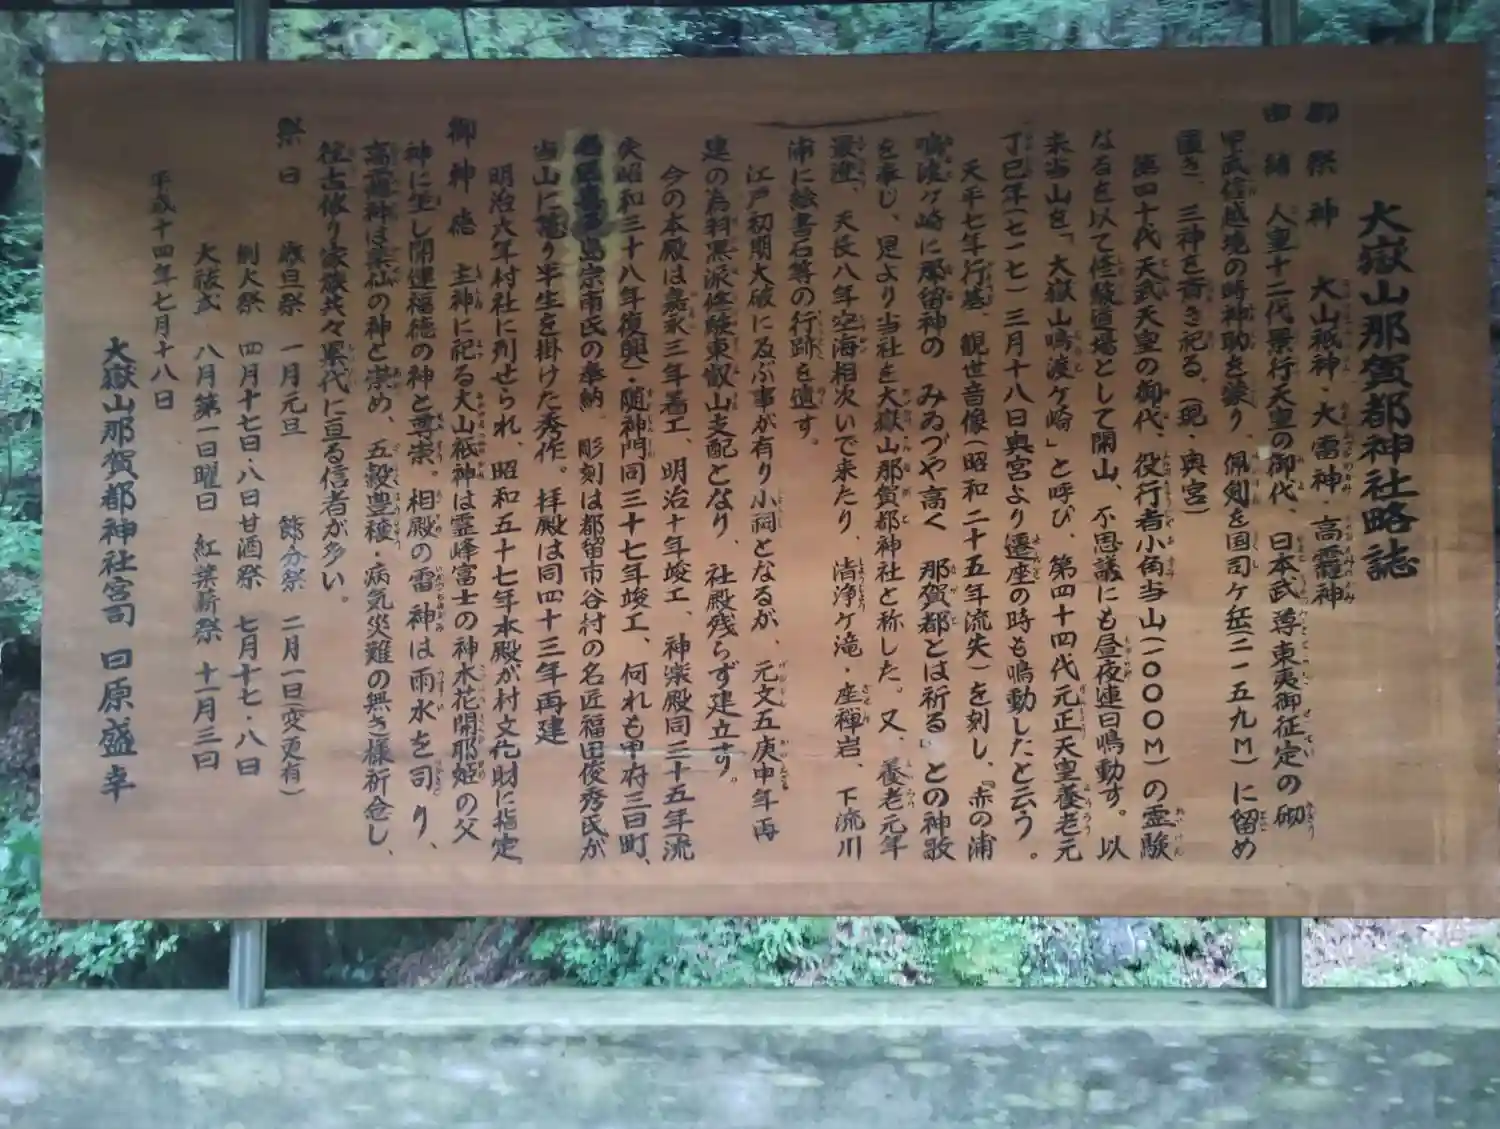 大嶽山那賀都神社略誌
御祭神 大山祇神・大雷神 高龗神
由緒 人皇十二代景行天皇の御代、日本武尊東夷御征定の砌
甲武信越境の時神助を蒙り、佩剣を国司ヶ岳(二一五九M)に留め
置き、三神を斎き祀る。(現・奥宮)
第四十代天武天皇の御代、役行者小角当山(一〇〇〇M)の霊験
なるを以て修験道場として開山、不思議にも昼夜連日鳴動す。以
来当山を「大嶽山鳴渡ヶ崎」と呼び、第四十四代元正天皇養老元
丁巳年(七一七)三月十八日奥宮より遷座の時も鳴動したと云う。
天平七年行基、観世音像(昭和二十五年流失)を刻し、『赤の浦
鳴渡ヶ崎に那留神の みゐづや高く 那賀都とは祈る』との神歌
を奉じ、是より当社を大嶽山那賀都神社と称した。又、養老元年
最澄、天長八年空海相次いで来たり、清浄ヶ滝・座禅岩、下流川
浦に絵書石等の行跡を遺す。
江戸初期大破に及ぶ事が有り小祠となるが、元文五庚申年再
建の為羽黒派修験東叡山支配となり、社殿残らず建立す。
今の本殿は嘉永三年着工、明治十年竣工、神楽殿同三十五年流
失昭和三十八年復興)・随神門同三十七年竣工、何れも甲府三日町、
島宗南氏の奉納。彫刻は都留市谷村の名匠福田俊秀氏が
当山に篭り半生を掛けた秀作。拝殿は同四十三年再建
明治六年村社に列せられ、昭和五十七年本殿が村文化財に指定。
御神徳 主神に祀る大山祇神は霊峰富士の神木花開耶姫の父
神に坐し開運福徳の神と尊崇。相殿の雷神は雨水を司り、
高龗神は薬仙の神と崇め、五穀豊穣・病気災難の無き様祈念し、
往古依り家族共々累代に亘る信者が多い。
祭日 歳旦祭 一月元旦 節分祭 二月一日(変更有)
例火祭 四月十七日・八日甘酒祭 七月十七・八日
大祓式 八月第一日曜日 紅葉薪祭 十一月三日
平成十四年七月十八日
大嶽山那賀都神社宮司 日原盛幸